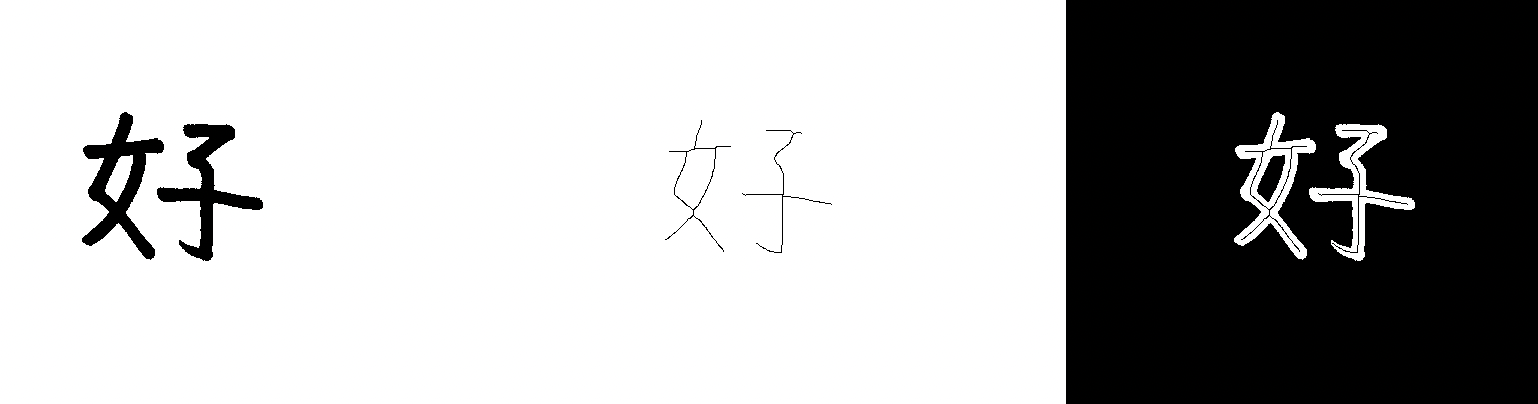 好 好 好